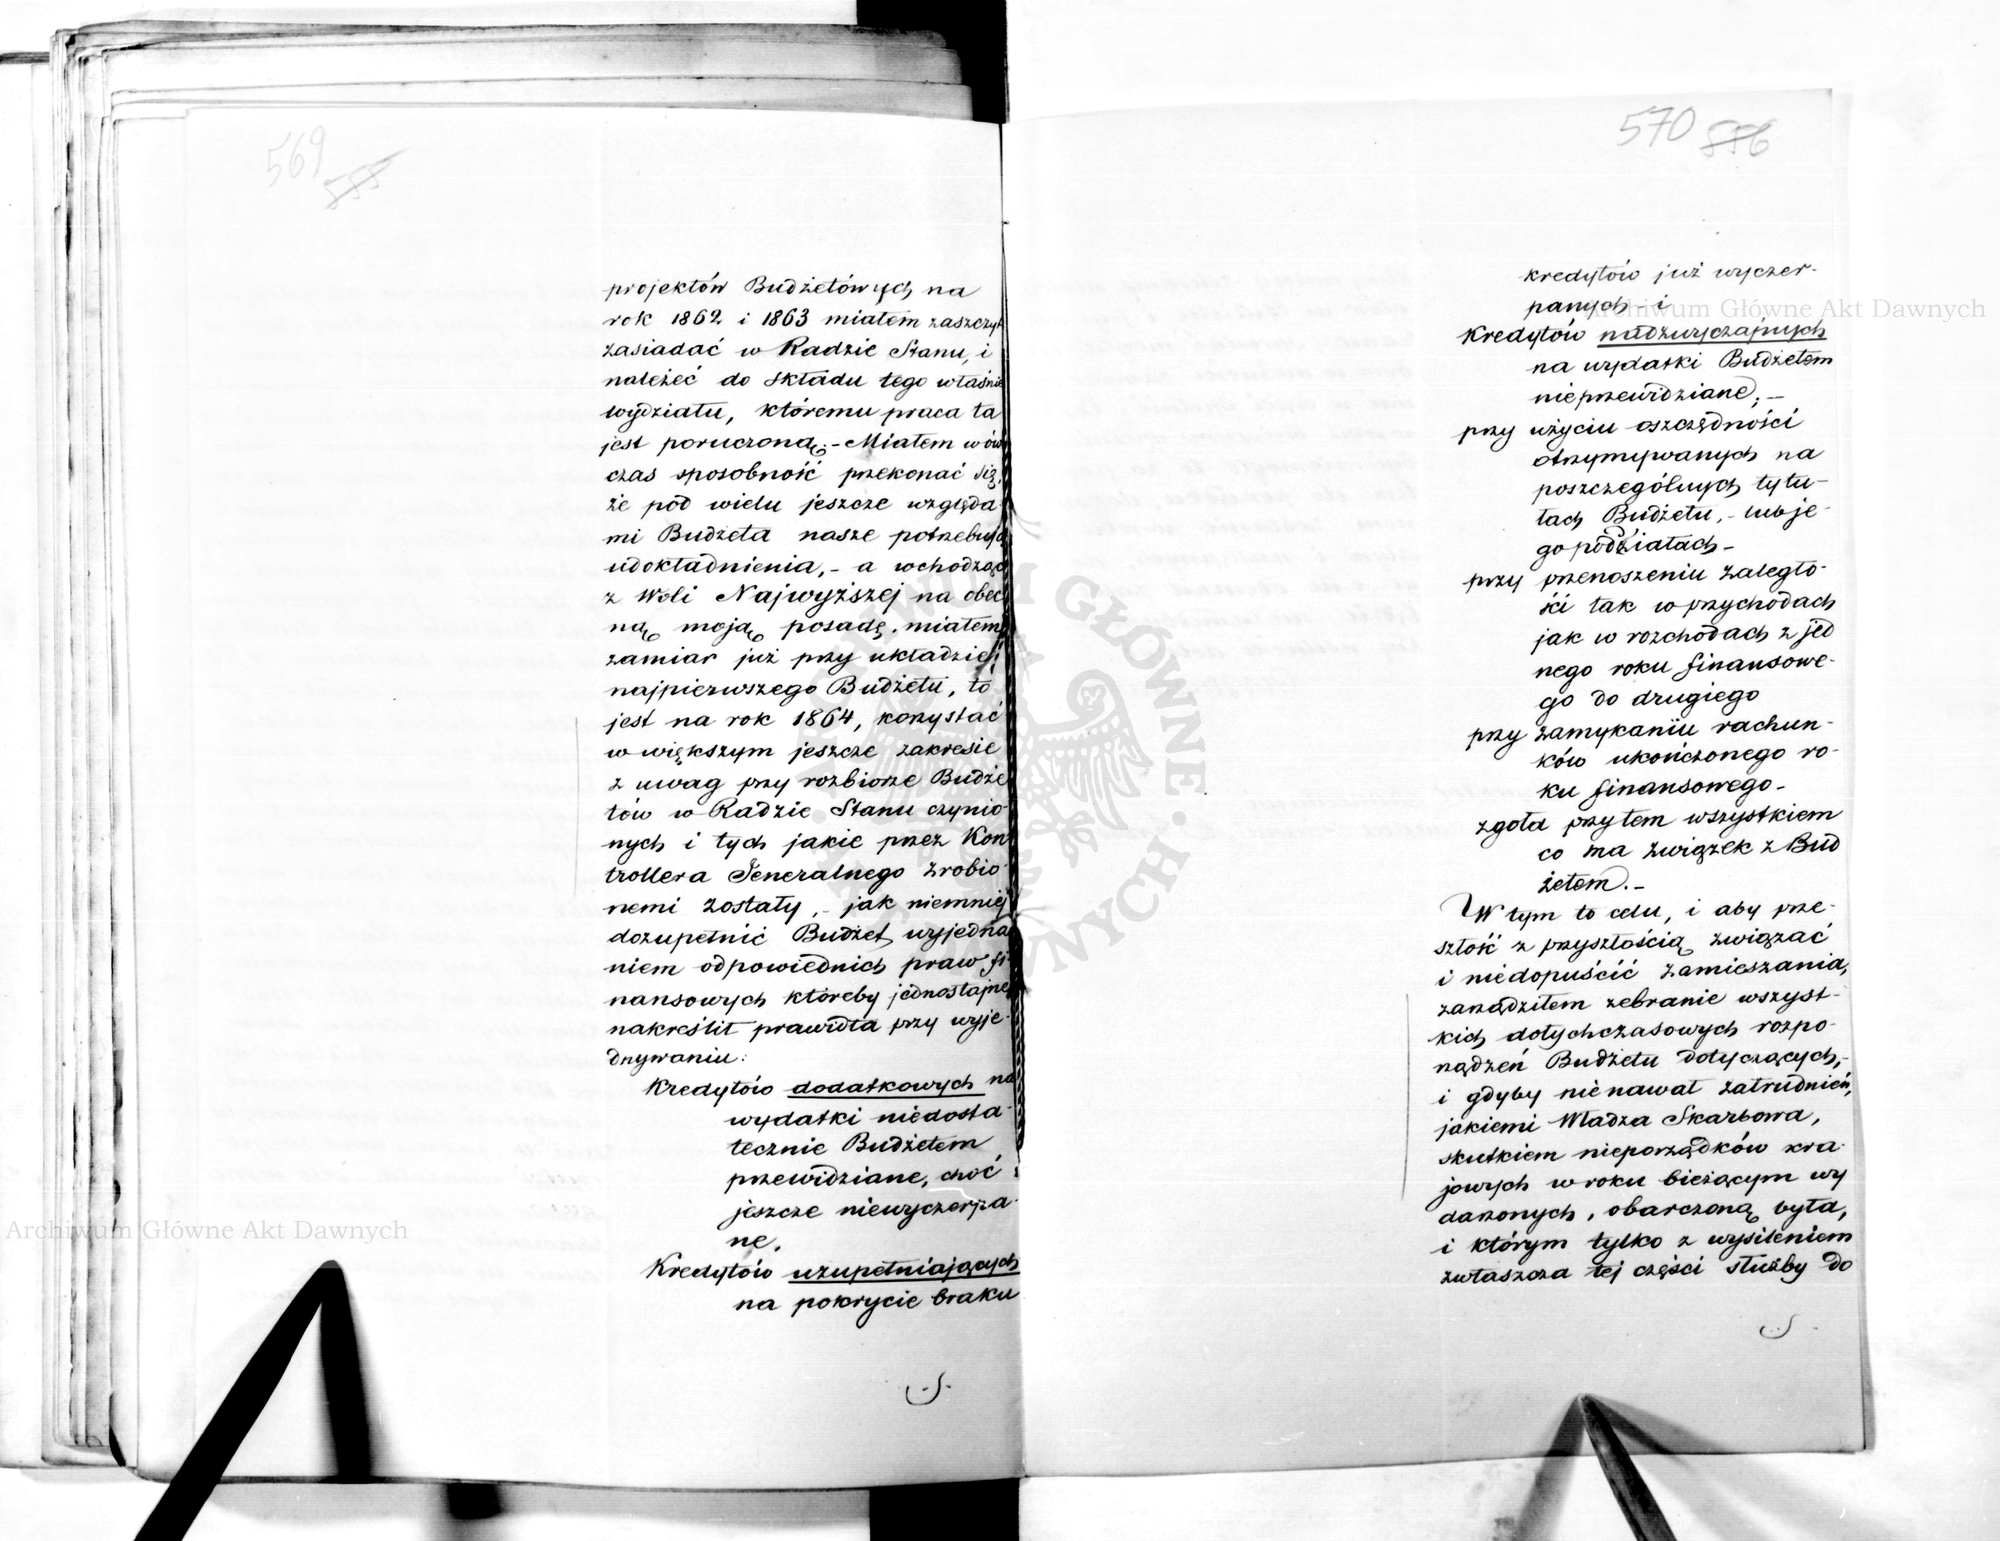 569
555
projektów Budżetówych na
rok 1862 i 1863 miałem zaszczyt
zasiadać w Radzie Stanu, i
należeć do składu tego właśnie
wydziału, któremu praca ta
jest poruczoną;- Miałem wów
czas sposobność przekonać się,
że pod wielu jeszcze względa
mi Budżeta nasze potrzebują
udokładnienia,- a wchodząc
z Woli Najwyższej na obec
ną moją posadę, miałem
zamiar już przy układzie
najpierwszego Budżetu, to
jest na rok 1864, korzystać
w większym jeszcze zakresie
z uwag przy rozbiorze Budże
tów w Radzie Stanu czynio-
nych i tych jakie przez Kon
trollera Jeneralnego zrobio-
nemi zostały,- jak niemniej
dozupełnić Budżet, wyjedna
niem odpowiednich praw fi-
nansowych któreby jednostajne
nakreślił prawidła przy wyje-
dnywaniu:
Kredytów dodatkowych na
wydatki niedosta-
tecznie Budżetem
przewidziane, choć
jeszcze niewyczerpa-
ne.
Kredytów uzupełniających
na pokrycie braku
570 886
kredytów już wyczer-
panych - i
Kredytów nadzwyczajnych
na wydatki Budżetem
nieprzewidziane;-
przy użyciu oszczędności
otrzymywanych na
poszczególnych tytu-
łach Budżetu,- lub je-
go poddziałach-
przy przenoszeniu zaległo-
ści tak w przychodach
jak w rozchodach z jed
nego roku finansowe-
go do drugiego
przy zamykaniu rachun-
ków ukończonego ro-
ku finansowego-
zgoła przy tem wszystkiem
co ma związek z Bud
żetem.-
W tym to celu, i aby prze-
szłość z przyszłością związać
i niedopuścić zamieszania,
zarządziłem zebranie wszyst-
kich dotychczasowych rozpo-
rządzeń Budżetu dotyczących,-
i gdyby nie nawał zatrudnień,
jakiemi Władza Skarbowa,
skutkiem nieporządków kra-
jowych w roku bieżącym wy
darzonych, obarczoną była,
i którym tylko z wysileniem
zwłaszcza tej części służby do
Archiwum Główne Akt Dawnych
Archiwum Główne Akt Dawnych
ARCHIWUM GŁÓWNE AKT DAWNYCH